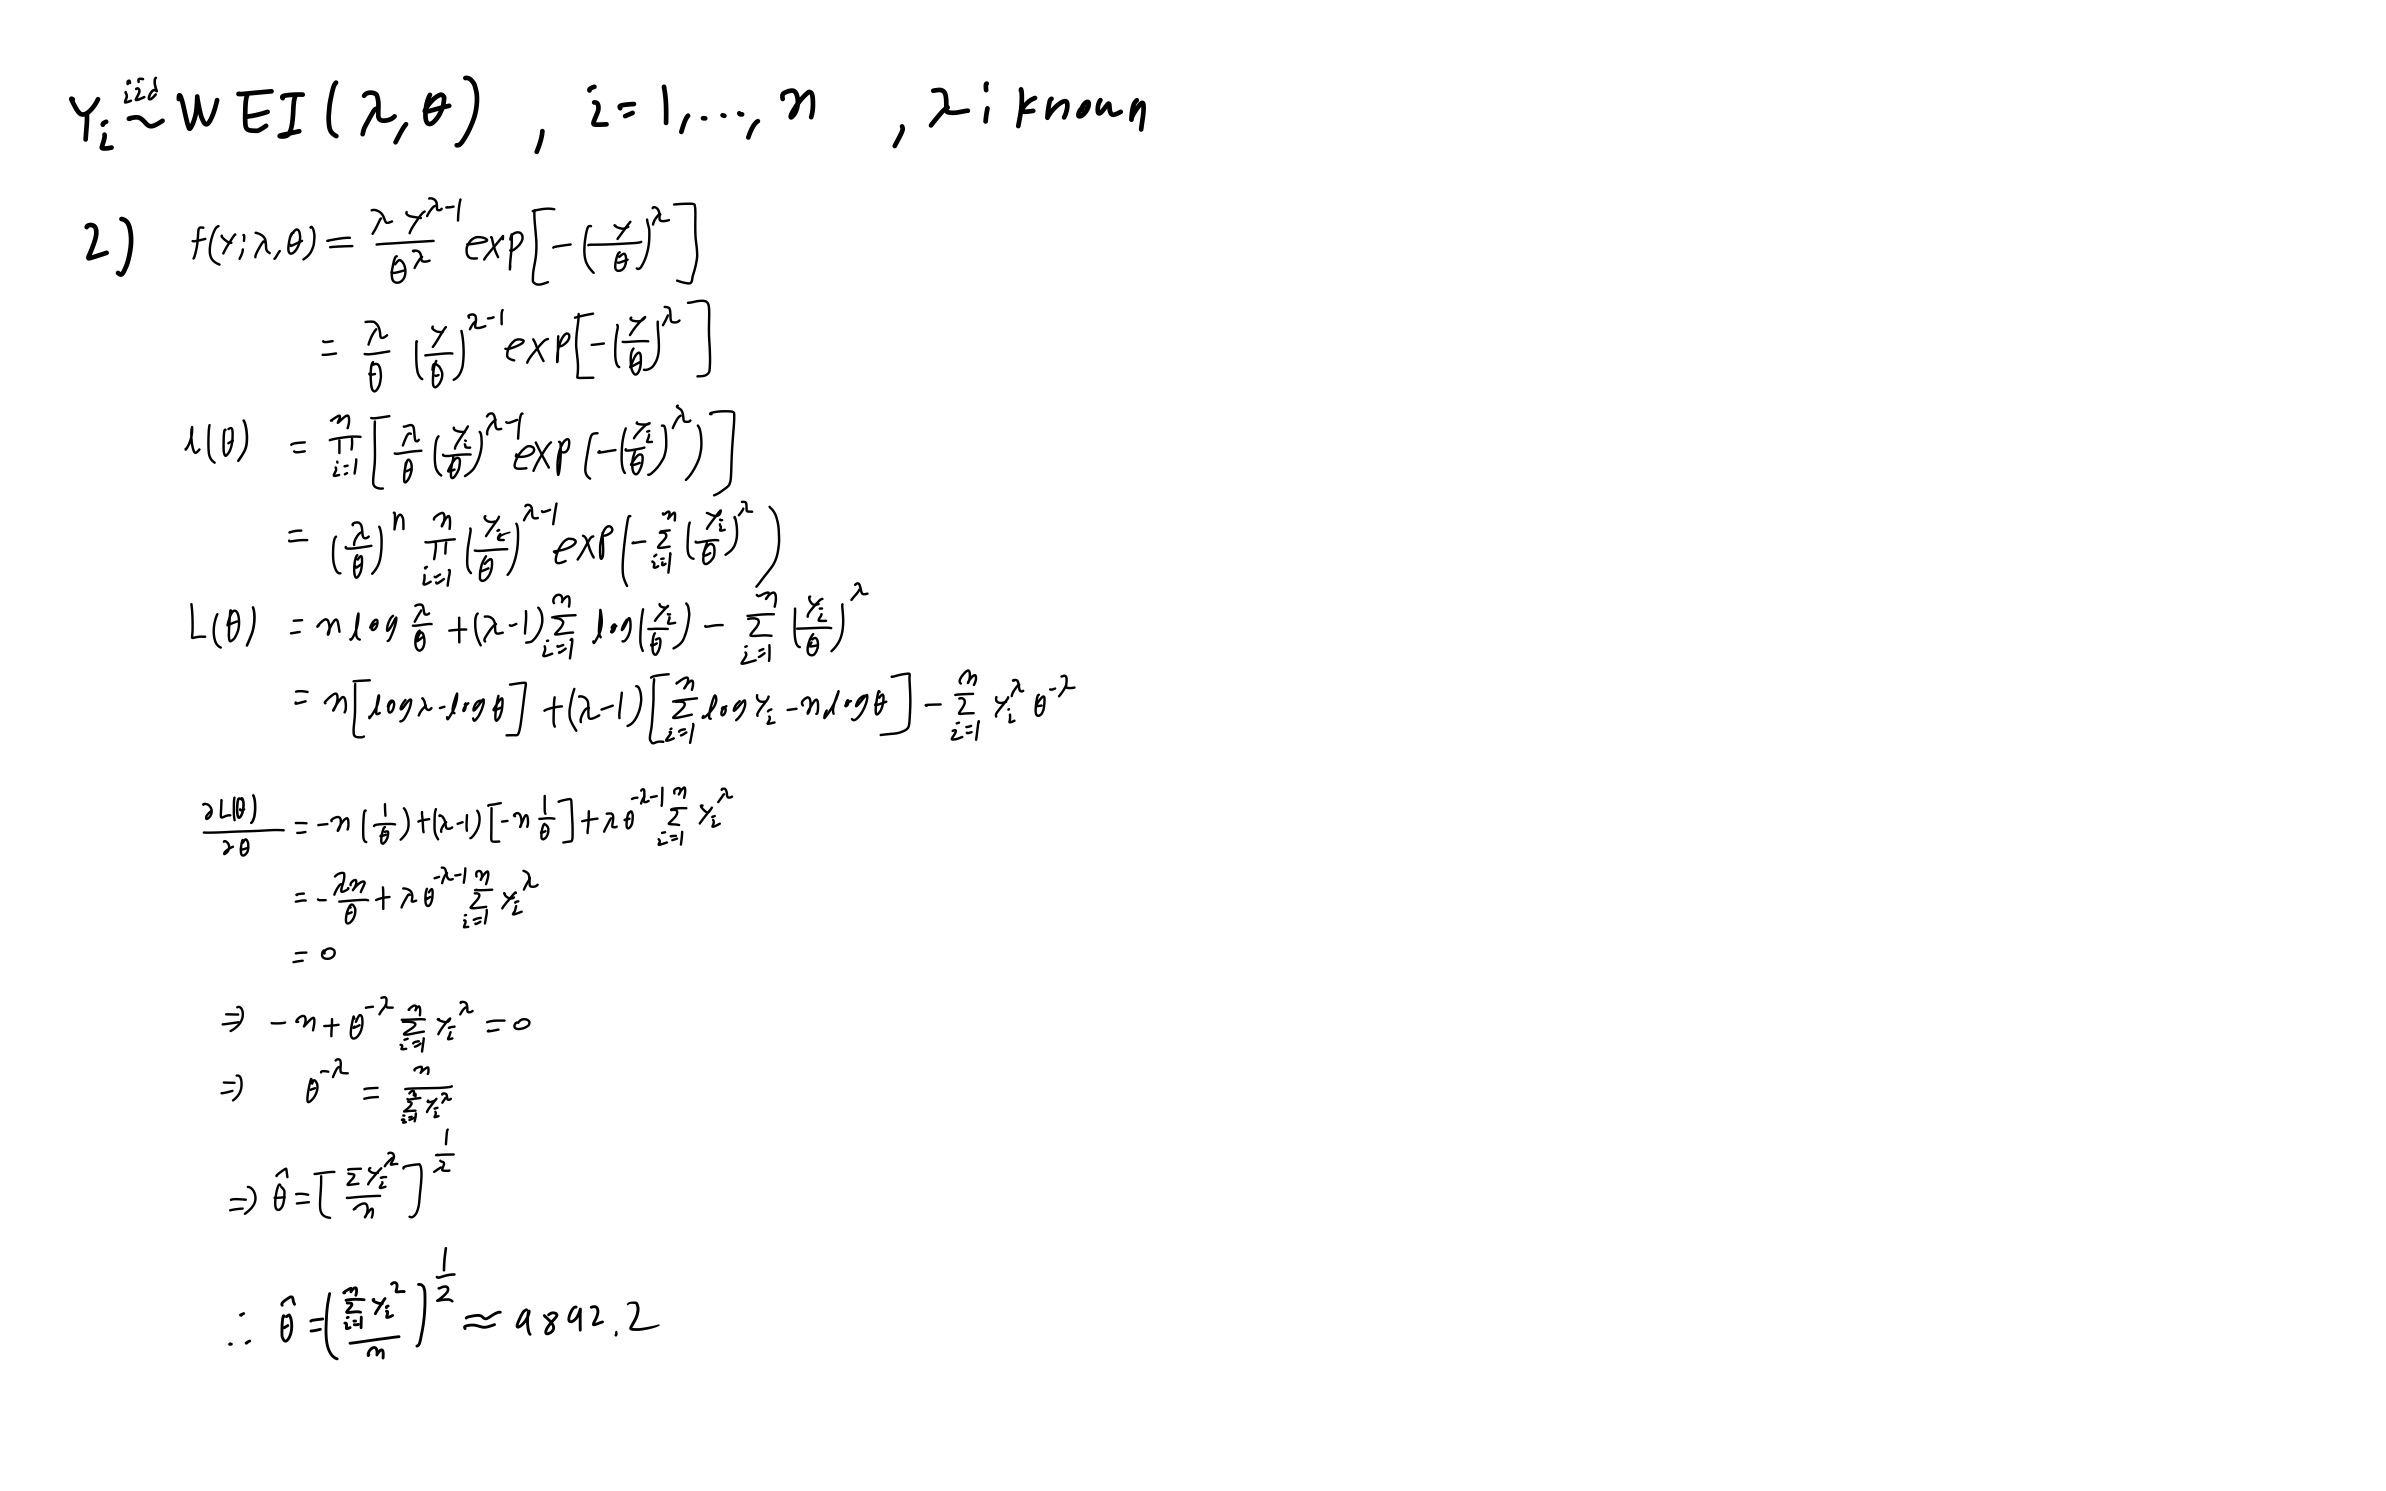 Y_i iid~ WEI(λ, θ) , i = 1, ..., n , λ i known
2) f(y; λ, θ) = λ y^{λ-1} / θ^λ exp[-(y/θ)^λ]
= λ/θ (y/θ)^{λ-1} exp[-(y/θ)^λ]
l(θ) = ∏_{i=1}^n [λ/θ (y_i/θ)^{λ-1} exp(-(y_i/θ)^λ)]
= (λ/θ)^n ∏_{i=1}^n (y_i/θ)^{λ-1} exp(-∑_{i=1}^n (y_i/θ)^λ)
L(θ) = n log λ/θ + (λ-1) ∑_{i=1}^n log(y_i/θ) - ∑_{i=1}^n (y_i/θ)^λ
= n[log λ - log θ] + (λ-1)[∑_{i=1}^n log y_i - n log θ] - ∑_{i=1}^n y_i^λ θ^{-λ}
∂L(θ)/∂θ = -n(1/θ) + (λ-1)[-n 1/θ] + λ θ^{-λ-1} ∑_{i=1}^n y_i^λ
= -λn/θ + λ θ^{-λ-1} ∑_{i=1}^n y_i^λ
= 0
⇒ -n + θ^{-λ} ∑_{i=1}^n y_i^λ = 0
⇒ θ^{-λ} = n / ∑_{i=1}^n y_i^λ
⇒ θ̂ = [∑ y_i^λ / n]^{1/λ}
∴ θ̂ = (∑_{i=1}^n y_i^2 / n)^{1/2} ≈ 9892.2